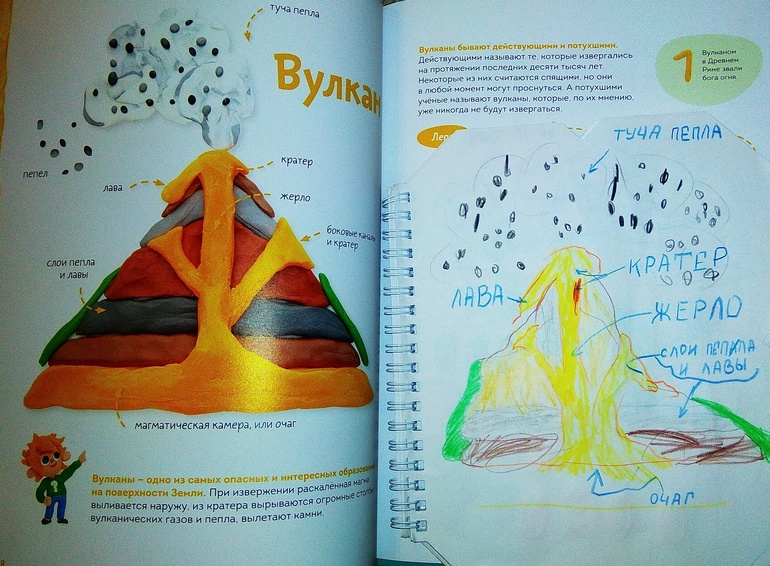 туча пепла
Вулкан
пепел
кратер
лава
жерло
боковые каналы
и кратер
слои пепла
и лавы
магматическая камера, или очаг
Вулканы – одно из самых опасных и интересных образований
на поверхности Земли. При извержении раскалённая магма
выливается наружу, из кратера вырываются огромные столбы
вулканических газов и пепла, вылетают камни.
Вулканы бывают действующими и потухшими.
Действующими называют те, которые извергались
на протяжении последних десяти тысяч лет.
Некоторые из них считаются спящими, но они
в любой момент могут проснуться. А потухшими
учёные называют вулканы, которые, по их мнению,
уже никогда не будут извергаться.
1
Вулканом
в Древнем
Риме звали
бога огня.
ТУЧА ПЕПЛА
КРАТЕР
ЛАВА
ЖЕРЛО
СЛОИ ПЕПИЛА
И ЛАВЫ
ОЧАГ